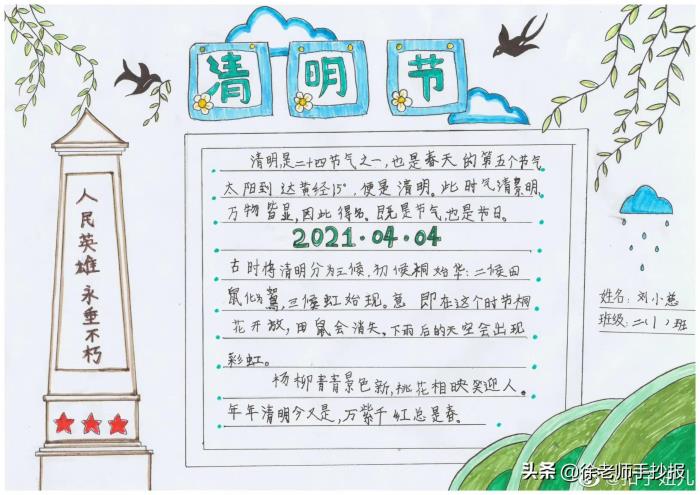 清明节
清明是二十四节气之一，也是春天的第五个节气
太阳到达黄经15°，便是清明。此时气清景明，
万物皆显，因此得名。既是节气，也是节日。
2021·04·04
古时将清明分为三候，初候桐始华：二候田
鼠化为鴽，三候虹始现。意 即在这个时节桐
花开放，田鼠会消失，下雨后的天空会出现
彩虹。
杨柳青青景色新，桃花相映笑迎人。
年年清明今又是，万紫千红总是春。
人民英雄永垂不朽
姓名：刘小慈
班级：二（1）班
头条 @徐老师手抄报